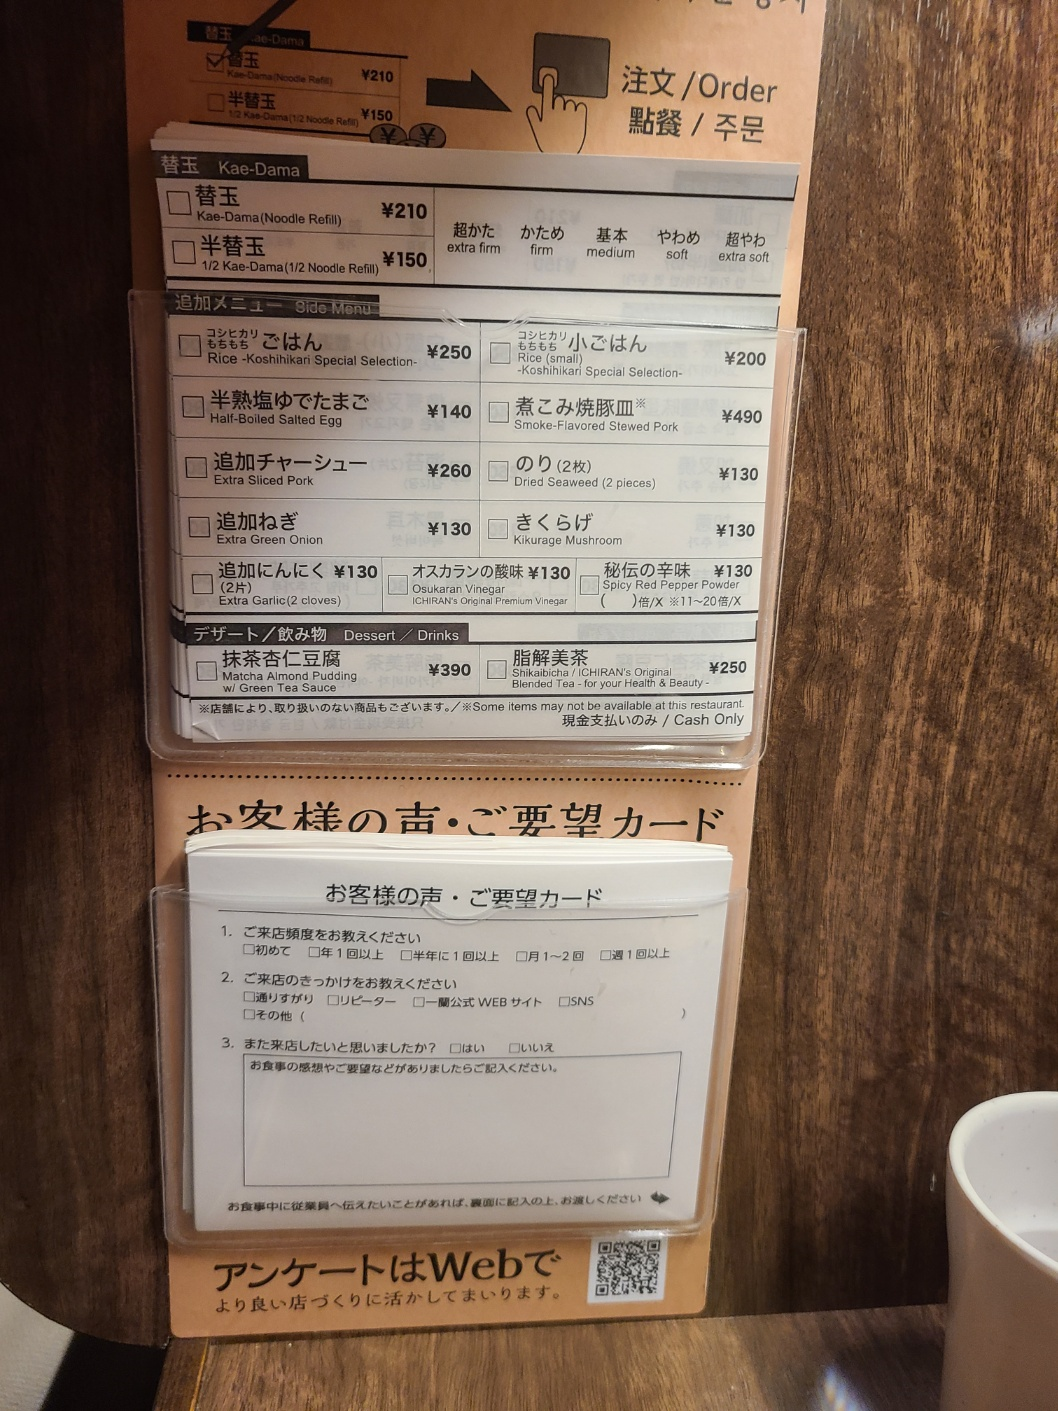 替玉 Kae-Dama
替玉
Kae-Dama(Noodle Refill) ¥210
半替玉
1/2 Kae-Dama(1/2 Noodle Refill) ¥150
注文 / Order
點餐 / 주문
替玉 Kae-Dama
替玉
Kae-Dama(Noodle Refill) ¥210
半替玉
1/2 Kae-Dama(1/2 Noodle Refill) ¥150
超かた かため 基本 やわめ 超やわ
extra firm firm medium soft extra soft
追加メニュー Side Menu
コシヒカリ もちもち ごはん ¥250
Rice -Koshihikari Special Selection-
コシヒカリ もちもち 小ごはん ¥200
Rice (small)
-Koshihikari Special Selection-
半熟塩ゆでたまご ¥140
Half-Boiled Salted Egg
煮こみ焼豚皿※ ¥490
Smoke-Flavored Stewed Pork
追加チャーシュー ¥260
Extra Sliced Pork
のり(2枚) ¥130
Dried Seaweed (2 pieces)
追加ねぎ ¥130
Extra Green Onion
きくらげ ¥130
Kikurage Mushroom
追加にんにく ¥130
(2片)
Extra Garlic(2 cloves)
オスカランの酸味 ¥130
Osukaran Vinegar
ICHIRAN's Original Premium Vinegar
秘伝の辛味 ¥130
Spicy Red Pepper Powder
( )倍/X ※11~20倍/X
デザート／飲み物 Dessert ／ Drinks
抹茶杏仁豆腐 ¥390
Matcha Almond Pudding
w/ Green Tea Sauce
脂解美茶 ¥250
Shikaibicha / ICHIRAN's Original
Blended Tea - for your Health & Beauty -
※店舗により、取り扱いのない商品もございます。／※Some items may not be available at this restaurant.
現金支払いのみ / Cash Only
お客様の声・ご要望カード
お客様の声・ご要望カード
1. ご来店頻度をお教えください
□初めて □年1回以上 □半年に1回以上 □月1~2回 □週1回以上
2. ご来店のきっかけをお教えください
□通りすがり □リピーター □一蘭公式WEBサイト □SNS
□その他 ( )
3. また来店したいと思いましたか? □はい □いいえ
お食事の感想やご要望などがありましたらご記入ください。
お食事中に従業員へ伝えたいことがあれば、裏面に記入の上、お渡しください
アンケートはWebで
より良い店づくりに活かしてまいります。